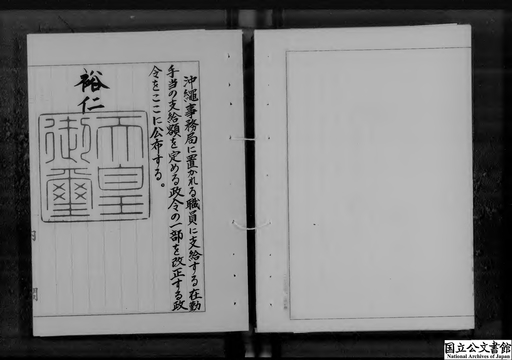 沖縄事務局に置かれる職員に支給する在勤
手当の支給額を定める政令の一部を改正する政
令をここに公布する。
裕仁
天皇
御璽
国立公文書館
National Archives of Japan